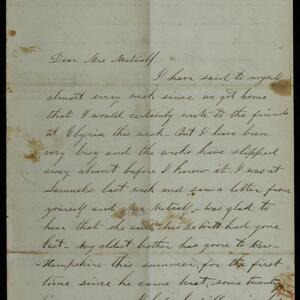 Dear Mrs Metcalf.
I have said to myself
almost every week since we got home
that I would certainly write to the friends
at Elyria this week. But I have been
very busy and the weeks have slipped
away almost before I knew it. I was at
Samuels last week and saw a letter from
yourself and Mr Metcalf - was glad to
hear that she and Mrs DeWitt had gone
East. My oldest brother has gone to New-
-Hampshire this summer for the first
time since he came West, some twenty